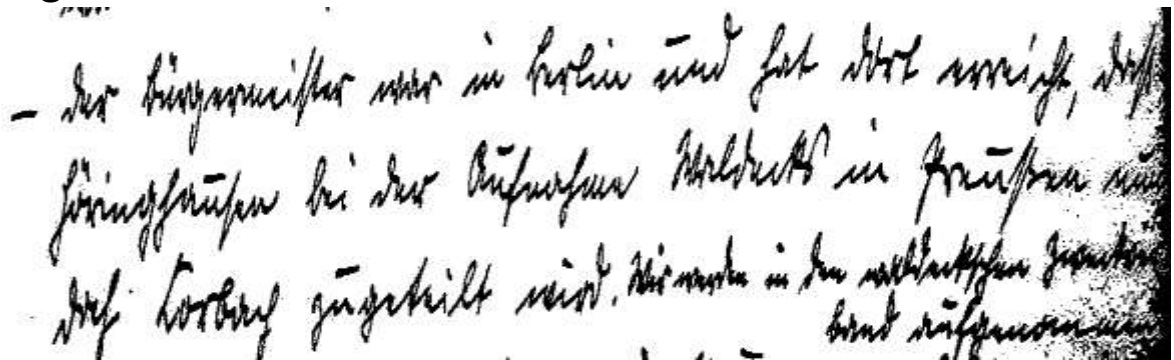 - Der Bürgermeister war in Berlin und hat dort erreicht, daß
Höringhausen bei der Aufnahme Waldecks in Preußen
Corbach zugeteilt wird. Wir werden in den waldeckschen
band aufgenommen